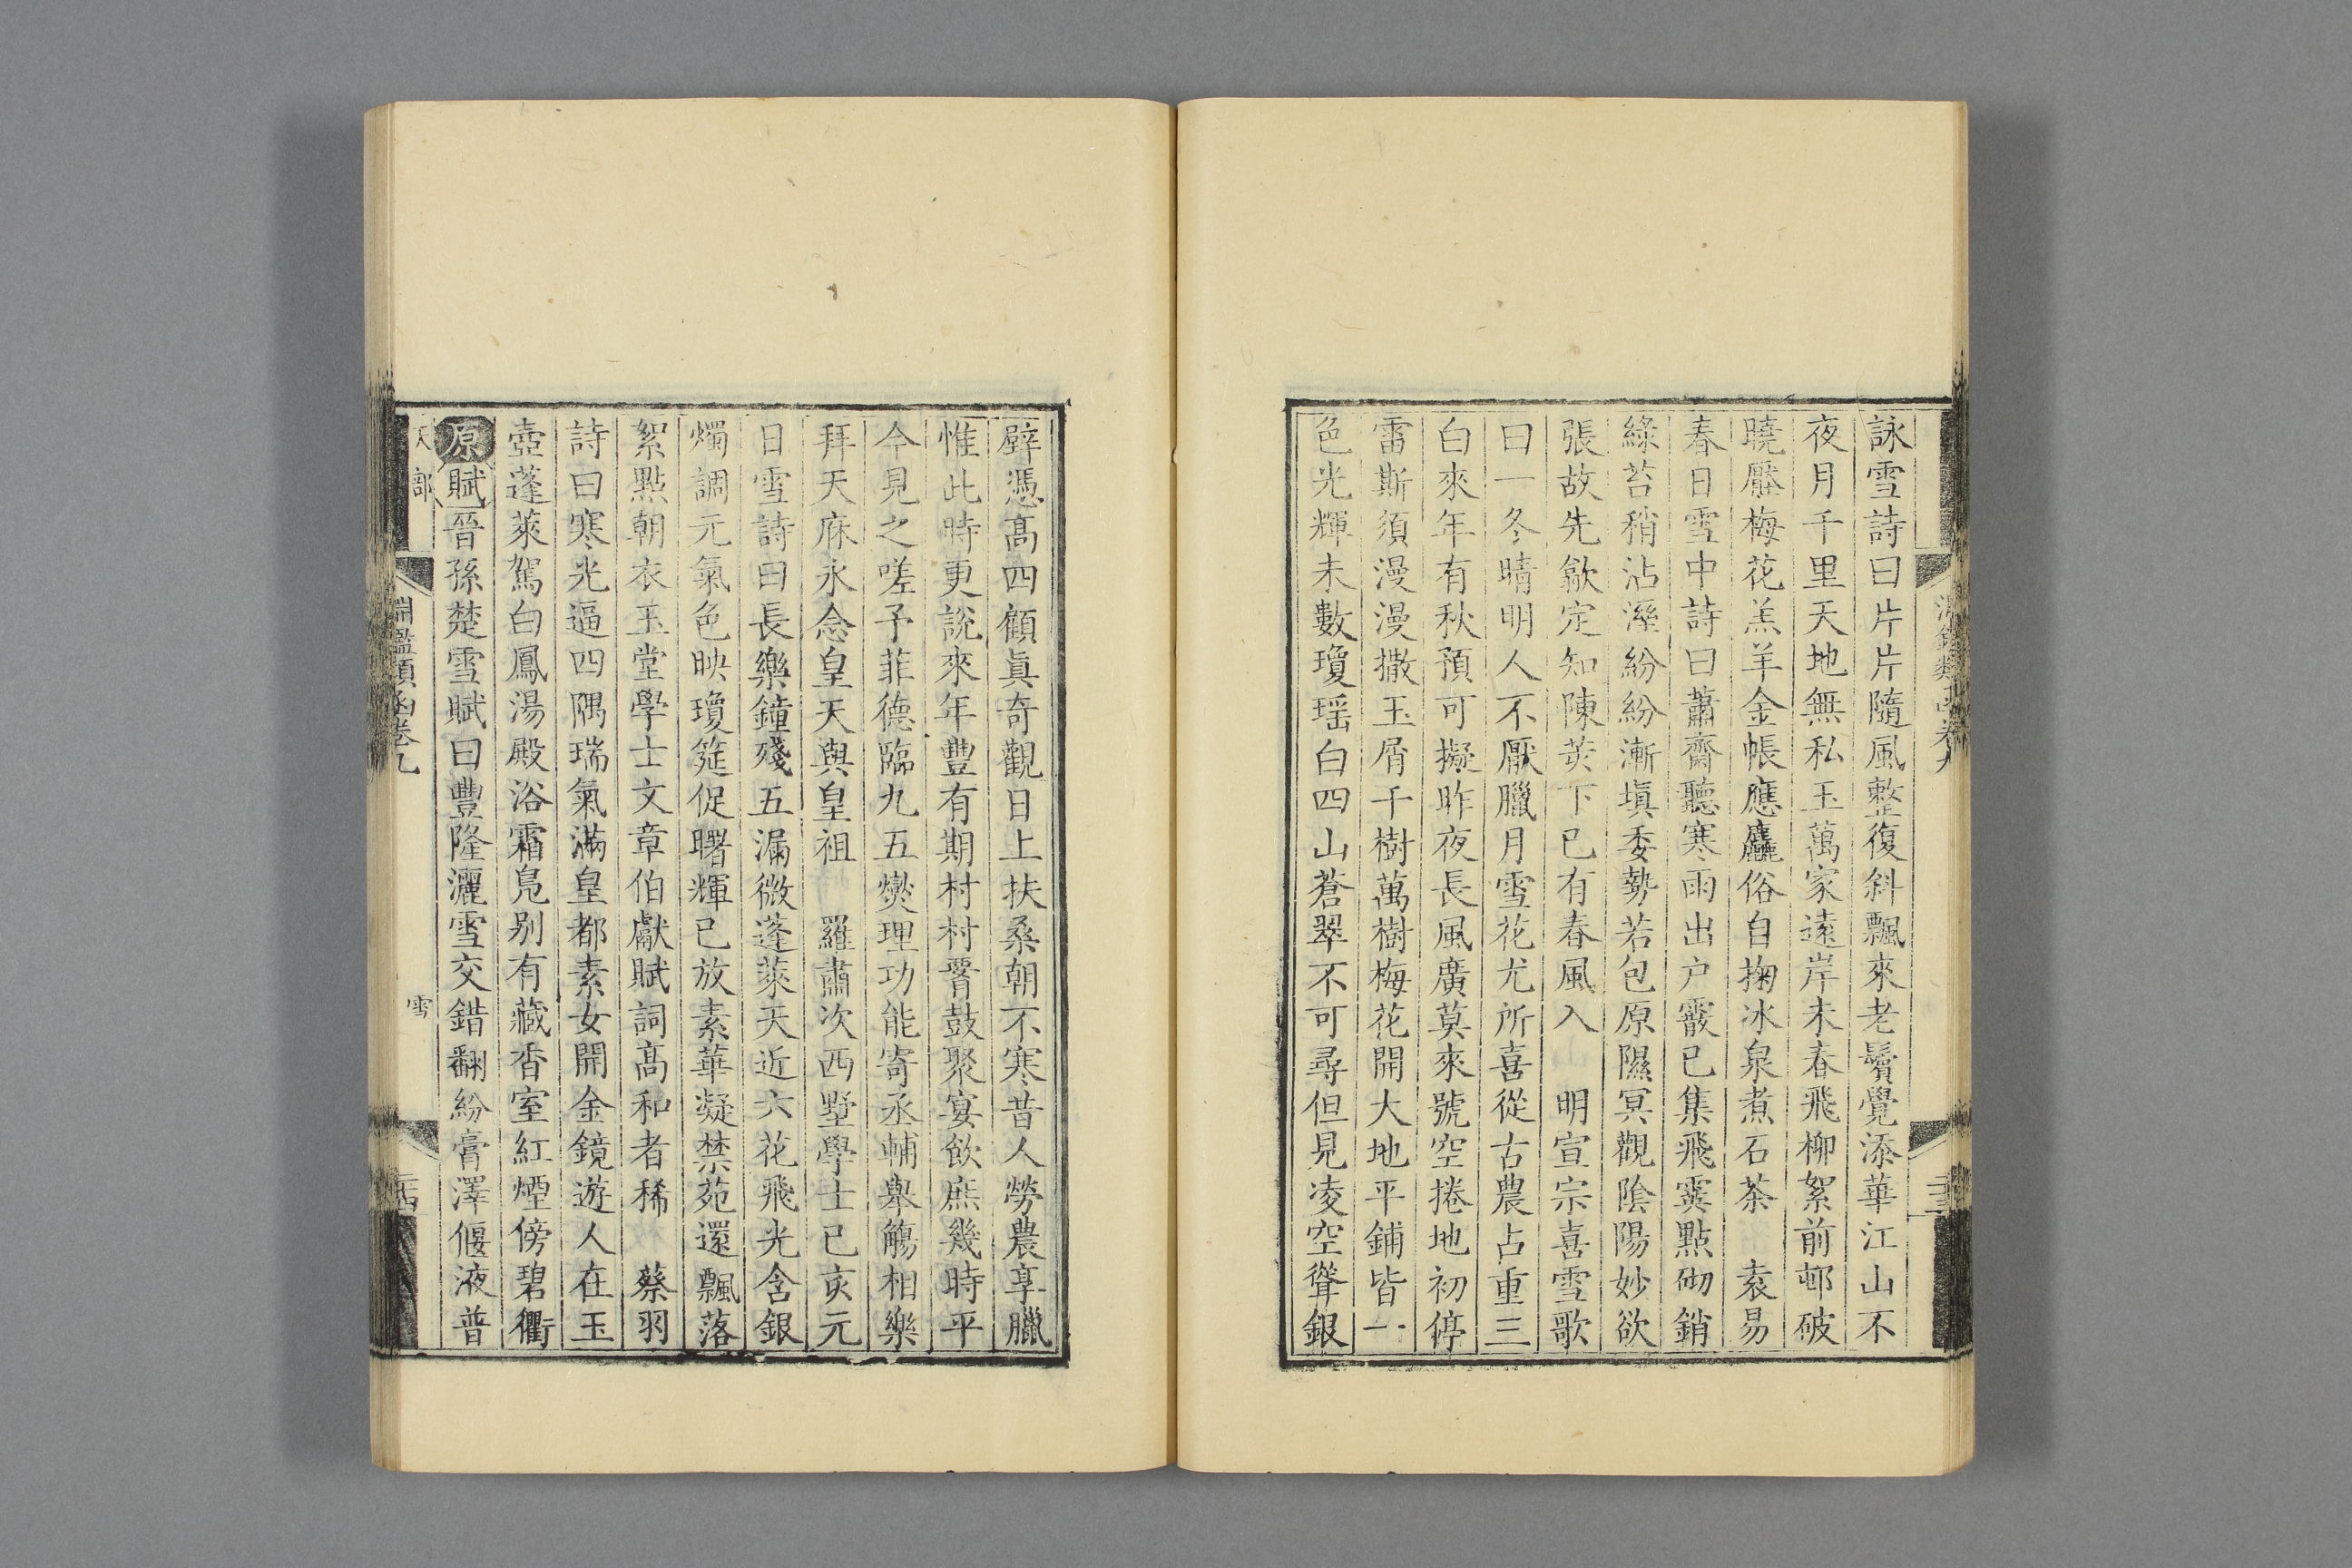 詠雪詩曰片片隨風整復斜飄來老鬢覺添華江山不
夜月千里天地無私玉萬家遠岸未春飛柳絮前邨破
曉壓梅花羔羊金帳應麤俗自掬冰泉煮石茶　袁易
春日雪中詩曰蕭齋聽寒雨出户霰已集飛霙點砌銷
綠苔稍沾溼紛紛漸塡委勢若包原隰冥觀陰陽妙欲
張故先歙定知陳荄下已有春風入　明宣宗喜雪歌
曰一冬晴明人不厭臘月雪花尤所喜從古農占重三
白來年有秋預可擬昨夜長風廣莫來號空捲地初停
雷斯須漫漫撒玉屑千樹萬樹梅花開大地平鋪皆一
色光輝未數瓊瑶白四山蒼翠不可尋但見凌空聳銀
淵鑑類函卷九　二十三
壁憑髙四顧眞奇觀日上扶桑朝不寒昔人勞農享臘
惟此時更說來年豐有期村村胥鼓聚宴飲庶幾時平
今見之嗟予菲德臨九五爕理功能寄丞輔舉觴相樂
拜天庥永念皇天與皇祖　羅肅次西墅學士已亥元
日雪詩曰長樂鐘殘五漏微蓬萊天近六花飛光含銀
燭調元氣色映瓊筵促曙輝已放素華凝禁苑還飄落
絮點朝衣玉堂學士文章伯獻賦詞髙和者稀　蔡羽
詩曰寒光逼四隅瑞氣滿皇都素女開金鏡遊人在玉
壺蓬萊駕白鳳湯殿浴霜鳬别有藏香室紅煙傍碧衢
原賦晉孫楚雪賦曰豐隆灑雪交錯翻紛膏澤偃液普
天部　淵鑑類函卷九　雪　二十四